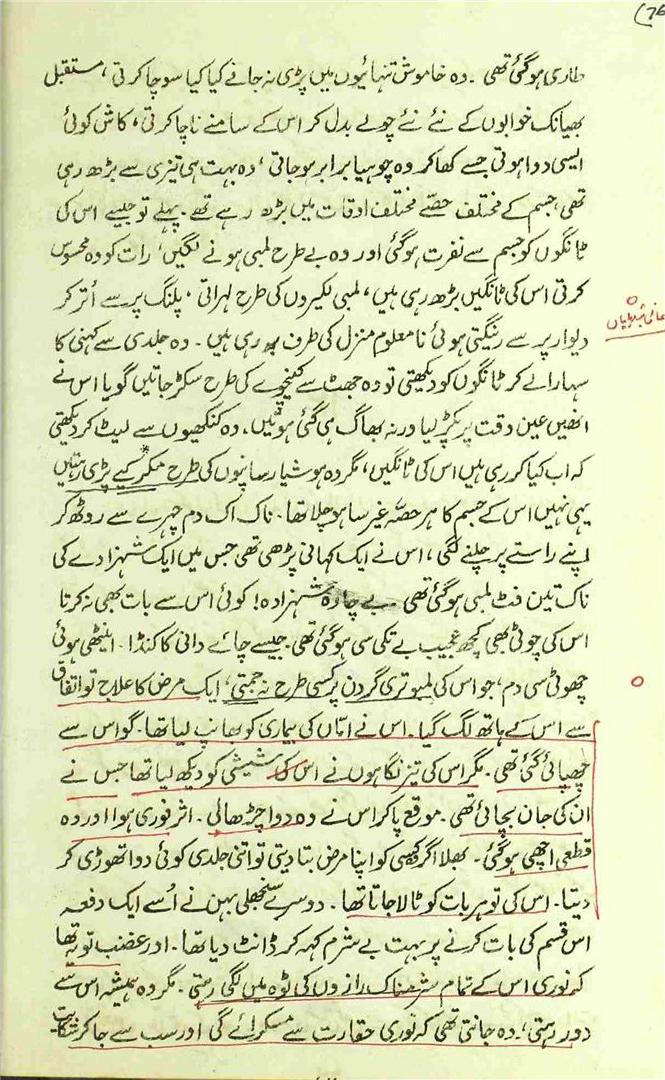 76)
طاری ہوگئی تھی ۔ وہ خاموش تنہائیوں میں پڑی نہ جانے کیا کیا سوچا کرتی ، مستقبل
بھیانک خوابوں کے نئے نئے چولے بدل کر اس کے سامنے ناچا کرتی ، کاش کوئی
ایسی دوا ہوتی جسے کھا کر وہ چوہیا برابر ہو جاتی ، وہ بہت ہی تیزی سے بڑھ رہی
تھی ، جسم کے مختلف حصّے مختلف اوقات میں بڑھ رہے تھے ۔ پہلے تو جیسے اس کی
ٹانگوں کو جسم سے نفرت ہوگئی اور وہ بے طرح لمبی ہونے لگیں ، رات کو وہ محسوس
کرتی اس کی ٹانگیں بڑھ رہی ہیں ، لمبی لکیروں کی طرح لہراتی ، پلنگ پر سے اُتر کر
دیوار پر سے رینگتی ہوئی نامعلوم منزل کی طرف بڑھ رہی ہیں ۔ وہ جلدی سے کہنی کا
سہارا لے کر ٹانگوں کو دیکھتی تو وہ جھٹ سے کینچوے کی طرح سکڑ جاتیں گویا اس نے
انھیں عین وقت پر پکڑ لیا ورنہ بھاگ ہی گئی ہوتیں ، وہ کنکھیوں سے لیٹ کر دیکھتی
کہ اب کیا کر رہی ہیں اس کی ٹانگیں ، مگر وہ ہوشیار سانپوں کی طرح مکر کیے پڑی رہتیں
یہی نہیں اس کے جسم کا ہر حصّہ غیر سا ہو چلا تھا ۔ ناک اک دم چہرے سے روٹھ کر
اپنے راستے پر چلنے لگی ، اس نے ایک کہانی پڑھی تھی جس میں ایک شہزادے کی
ناک تین فٹ لمبی ہوگئی تھی ۔ بے چارہ شہزادہ! کوئی اس سے بات بھی نہ کرتا
اس کی چوٹی بھی کچھ عجیب بے تکی سی ہوگئی تھی ۔ جیسے چائے دانی کا کنڈا ۔ اینٹھی ہوئی
چھوٹی سی دم ، جو اس کی لمبوتری گردن پر کسی طرح نہ جمتی ، ایک مرض کا علاج تو اتفاق
سے اس کے ہاتھ لگ گیا ۔ اس نے امّاں کی بیماری کو بھانپ لیا تھا ۔ گو اس سے
چھپائی گئی تھی ۔ مگر اس کی تیز نگاہوں نے اس کی شیشی کو دیکھ لیا تھا جس نے
ان کی جان بچائی تھی ۔ موقع پا کر اس نے وہ دوا چڑھالی ۔ اثر فوری ہوا اور وہ
قطعی اچھی ہوگئی ۔ بھلا اگر کسی کو اپنا مرض بتا دیتی تو اتنی جلدی کوئی دوا تھوڑی کر
دیتا ۔ اس کی تو ہر بات کو ٹالا جاتا تھا ۔ دوسرے منجھلی بہن نے اُسے ایک دفعہ
اس قسم کی بات کرنے پر بہت بے شرم کہہ کر ڈانٹ دیا تھا ۔ اور غضب تو یہ تھا
کہ نوری اس کے تمام شرمناک رازوں کی ٹوہ میں لگی رہتی ۔ مگر وہ ہمیشہ اس سے
دور رہتی ، وہ جانتی تھی کہ نوری حقارت سے مسکرائے گی اور سب سے جا کر شکایت